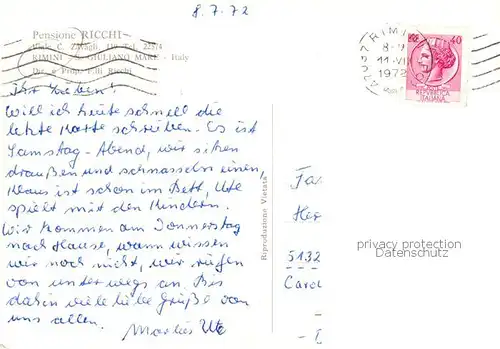 8.7.72
Pensione RICCHI
Viale C. Zavagli, Tel.
RIMINI - S. GIULIANO MARE - Italy
Dir. e Prop. F.lli Ricchi
Ihr Lieben!
Will ich heute schnell die
letzte Karte schreiben. Es ist
Samstag-Abend, wir sitzen
draußen und schnasseln einen,
Klaus ist schon im Bett, Ute
spielt mit den Kindern.
Wir kommen am Donnerstag
nach Hause, wann wissen
wir noch nicht, wir rufen
von unterwegs an. Bis
dahin viele liebe Grüße von
uns allen.
Marlies Ute
Riproduzione Vietata
RIMINI
8-9
11.VII
1972
40
REPUBBLICA
ITALIANA
Fa
Her
5132
Card
privacy protection
Datenschutz